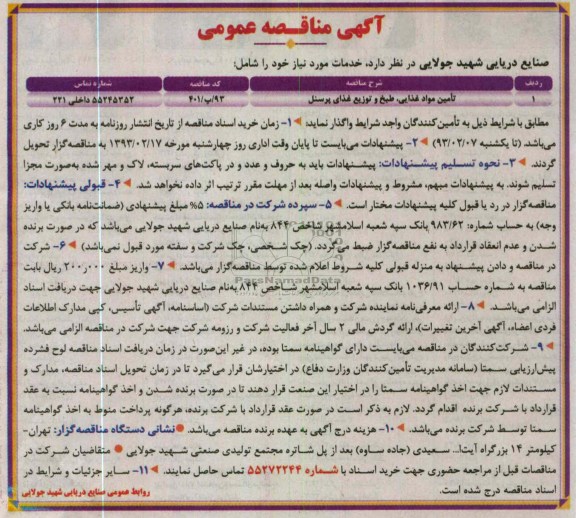 آگهی مناقصه عمومی
صنایع دریایی شهید جولایی در نظر دارد، خدمات مورد نیاز خود را شامل:
ردیف شرح مناقصه کد مناقصه شماره تماس
۱ تأمین مواد غذایی، طبخ و توزیع غذای پرسنل ۹۳/پ/۴۰۱ ۵۵۲۴۵۳۵۲ داخلی ۲۲۱
مطابق با شرایط ذیل به تأمین‌کنندگان واجد شرایط واگذار نماید: ۱- زمان خرید اسناد مناقصه از تاریخ انتشار روزنامه به مدت ۶ روز کاری
می‌باشد. (تا یکشنبه ۹۳/۰۲/۰۷) ۲- پیشنهادات می‌بایست تا پایان وقت اداری روز چهارشنبه مورخه ۱۳۹۳/۰۲/۱۷ به مناقصه‌گزار تحویل
گردند. ۳- نحوه تسلیم پیشنهادات: پیشنهادات باید به حروف و عدد و در پاکت‌های سربسته، لاک و مهر شده به‌صورت مجزا
تسلیم شوند. به پیشنهادات مبهم، مشروط و پیشنهادات واصله بعد از مهلت مقرر ترتیب اثر داده نخواهد شد. ۴- قبولی پیشنهادات:
مناقصه‌گزار در رد یا قبول کلیه پیشنهادات مختار است. ۵- سپرده شرکت در مناقصه: ۵% مبلغ پیشنهادی (ضمانت‌نامه بانکی یا واریز
وجه) به حساب شماره: ۹۸۳/۶۲ بانک سپه شعبه اسلامشهر شاخص ۸۴۴ به‌نام صنایع دریایی شهید جولایی می‌باشد که در صورت برنده
شدن و عدم انعقاد قرارداد به نفع مناقصه‌گزار ضبط می‌گردد. (چک شخصی، چک شرکت و سفته مورد قبول نمی‌باشد) ۶- شرکت
در مناقصه و دادن پیشنهاد به منزله قبولی کلیه شروط اعلام شده توسط مناقصه‌گزار می‌باشد. ۷- واریز مبلغ ۲۰۰٫۰۰۰ ریال بابت
مناقصه به شماره حساب ۱۰۳۶/۹۱ بانک سپه شعبه اسلامشهر شاخص ۸۴۴ به‌نام صنایع دریایی شهید جولایی جهت دریافت اسناد
الزامی می‌باشد. ۸- ارائه معرفی‌نامه نماینده شرکت و همراه داشتن مستندات شرکت (اساسنامه، آگهی تأسیس، کپی مدارک اطلاعات
فردی اعضاء، آگهی آخرین تغییرات)، ارائه گردش مالی ۲ سال آخر فعالیت شرکت و رزومه شرکت جهت شرکت در مناقصه الزامی می‌باشد.
۹- شرکت‌کنندگان در مناقصه می‌بایست دارای گواهینامه سمتا بوده، در غیر این‌صورت در زمان دریافت اسناد مناقصه لوح فشرده
پیش‌ارزیابی سمتا (سامانه مدیریت تأمین‌کنندگان وزارت دفاع) در اختیارشان قرار می‌گیرد تا در زمان تحویل اسناد مناقصه، مدارک و
مستندات لازم جهت اخذ گواهینامه سمتا را در اختیار این صنعت قرار دهند تا در صورت برنده شدن و اخذ گواهینامه نسبت به عقد
قرارداد با شرکت برنده اقدام گردد. لازم به ذکر است در صورت عقد قرارداد با شرکت برنده، هرگونه پرداخت منوط به اخذ گواهینامه
سمتا توسط شرکت برنده می‌باشد. ۱۰- هزینه درج آگهی به عهده برنده مناقصه می‌باشد. نشانی دستگاه مناقصه‌گزار: تهران-
کیلومتر ۱۴ بزرگراه آیت‌ا... سعیدی (جاده ساوه) بعد از پل شاتره مجتمع تولیدی صنعتی شهید جولایی متقاضیان شرکت در
مناقصات قبل از مراجعه حضوری جهت خرید اسناد با شماره ۵۵۲۷۲۲۴۴ تماس حاصل نمایند. ۱۱- سایر جزئیات و شرایط در
اسناد مناقصه درج شده است. روابط عمومی صنایع دریایی شهید جولایی